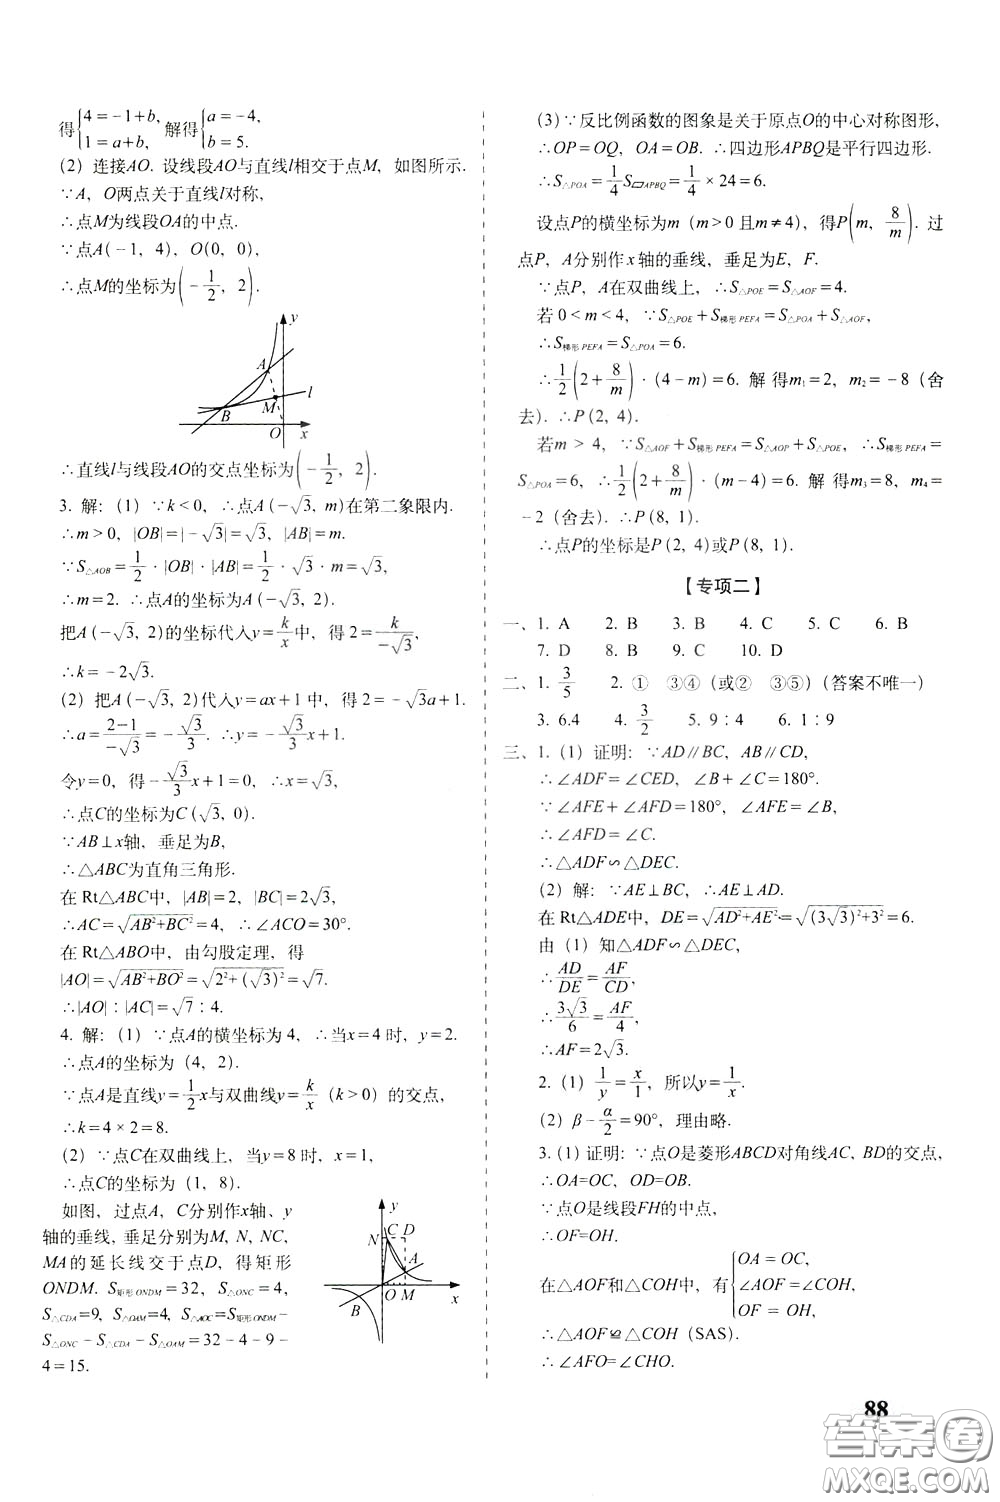 得{4=-1+b, 1=a+b, 解得{a=-4, b=5.
(2) 连接AO. 设线段AO与直线l相交于点M, 如图所示.
∵A, O两点关于直线l对称,
∴点M为线段OA的中点.
∵点A(-1, 4), O(0, 0),
∴点M的坐标为(-1/2, 2).
y
A
M
l
B
O
x
∴直线l与线段AO的交点坐标为(-1/2, 2).
3. 解: (1) ∵k<0, ∴点A(-√3, m)在第二象限内.
∴m>0, |OB|=|-√3|=√3, |AB|=m.
∵S△AOB=1/2·|OB|·|AB|=1/2·√3·m=√3,
∴m=2. ∴点A的坐标为A(-√3, 2).
把A(-√3, 2)的坐标代入y=k/x中, 得2=k/-√3,
∴k=-2√3.
(2) 把A(-√3, 2)代入y=ax+1中, 得2=-√3a+1.
∴a=2-1/-√3=-√3/3. ∴y=-√3/3x+1.
令y=0, 得-√3/3x+1=0, ∴x=√3.
∴点C的坐标为C(√3, 0).
∵AB⊥x轴, 垂足为B,
∴△ABC为直角三角形.
在Rt△ABC中, |AB|=2, |BC|=2√3,
∴AC=√AB²+BC²=4, ∴∠ACO=30°.
在Rt△ABO中, 由勾股定理, 得
|AO|=√AB²+BO²=√2²+(√3)²=√7.
∴|AO|∶|AC|=√7∶4.
4. 解: (1) ∵点A的横坐标为4, ∴当x=4时, y=2.
∴点A的坐标为 (4, 2).
∵点A是直线y=1/2x与双曲线y=k/x (k>0) 的交点,
∴k=4×2=8.
(2) ∵点C在双曲线上, 当y=8时, x=1,
∴点C的坐标为 (1, 8).
如图, 过点A, C分别作x轴、y
轴的垂线, 垂足分别为M, N, NC,
MA的延长线交于点D, 得矩形
ONDM. S矩形ONDM=32, S△ONC=4,
S△CDA=9, S△OAM=4, S△AOC=S矩形ONDM-
S△ONC-S△CDA-S△OAM=32-4-9-
4=15.
y
N
C
D
A
O
M
x
B
(3) ∵反比例函数的图象是关于原点O的中心对称图形,
∴OP=OQ, OA=OB. ∴四边形APBQ是平行四边形.
∴S△POA=1/4S▱APBQ=1/4×24=6.
设点P的横坐标为m (m>0且m≠4), 得P(m, 8/m). 过
点P, A分别作x轴的垂线, 垂足为E, F.
∵点P, A在双曲线上, ∴S△POE=S△AOF=4.
若0<m<4, ∵S△POE+S梯形PEFA=S△POA+S△AOF,
∴S梯形PEFA=S△POA=6.
∴1/2(2+8/m)·(4-m)=6. 解得m₁=2, m₂=-8(舍
去). ∴P(2, 4).
若m>4, ∵S△AOF+S梯形PEFA=S△AOP+S△POE, ∴S梯形PEFA=
S△POA=6, ∴1/2(2+8/m)·(m-4)=6. 解得m₃=8, m₄=
-2(舍去). ∴P(8, 1).
∴点P的坐标是P(2, 4)或P(8, 1).
【专项二】
一、1. A 2. B 3. B 4. C 5. C 6. B
7. D 8. B 9. C 10. D
二、1. 3/5 2. ① ③④(或② ③⑤)(答案不唯一)
3. 6.4 4. 3/2 5. 9∶4 6. 1∶9
三、1. (1) 证明: ∵AD∥BC, AB∥CD,
∴∠ADF=∠CED, ∠B+∠C=180°.
∵∠AFE+∠AFD=180°, ∠AFE=∠B,
∴∠AFD=∠C.
∴△ADF∽△DEC.
(2) 解: ∵AE⊥BC, ∴AE⊥AD.
在Rt△ADE中, DE=√AD²+AE²=√(3√3)²+3²=6.
由 (1) 知△ADF∽△DEC,
∴AD/DE=AF/CD,
∴3√3/6=AF/4,
∴AF=2√3.
2. (1) 1/y=x/1, 所以y=1/x.
(2) β-α/2=90°, 理由略.
3. (1) 证明: ∵点O是菱形ABCD对角线AC, BD的交点,
∴OA=OC, OD=OB.
∵点O是线段FH的中点,
∴OF=OH.
在△AOF和△COH中, 有{OA=OC, ∠AOF=∠COH, OF=OH,
∴△AOF≌△COH (SAS).
∴∠AFO=∠CHO.
88
答案圈
MXQE.COM